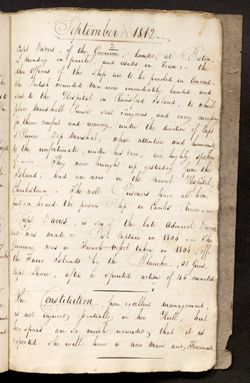 September 1812.
Capt Dacres, of the Guerriere landed at Boston
on Monday, on parole, and resides in Town. The
other officers of the Ship are to be paroled in Concord
The British wounded Men were immediately landed and
sent to the Hospital on Rainsford Island, to which
place Marshall Prince sent surgeons, and every necessary
for their comfort and recovery, under the direction of Capt
Prince, Dep Marshal, whose attention and humanity
to the unfortunate, under his care, are highly spoken
of. They were brought up yesterday from the
Island, and are now in the Naval Hospital,
Charlestown. The well Prisoners have all been
put on board the prison Ship in Charles River.
Capt Dacres, is son of the late Admiral Dacres
and was made Post Captain in 1806 - The
Guerriere was a French vessel taken in 1806, off
the Faroe Islands by the Blanche, 38 guns,
Capt Lavie, after a spirited action of 45 minutes
The Constitution, from excellent management,
is not injured essentially in her Hull, but
her spars are so much wounded, that it is
expected she will have a new main and Foremast